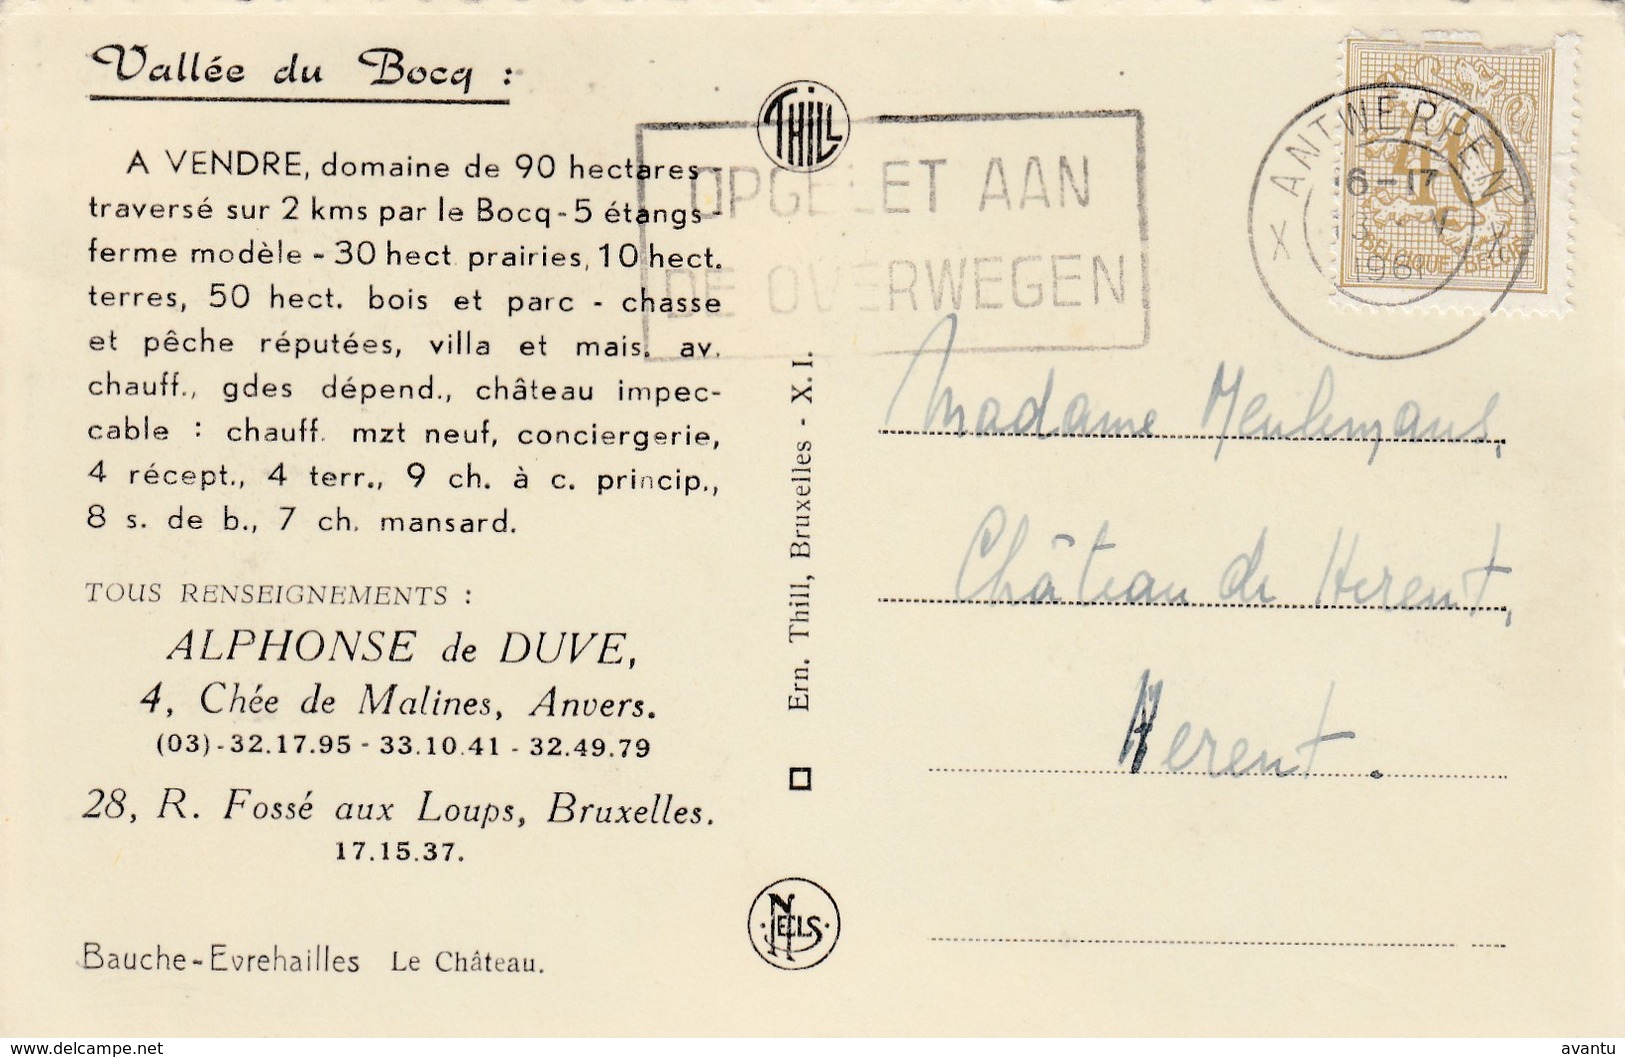 Vallée du Bocq :
A VENDRE, domaine de 90 hectares -
traversé sur 2 kms par le Bocq - 5 étangs -
ferme modèle - 30 hect. prairies, 10 hect.
terres, 50 hect. bois et parc - chasse
et pêche réputées, villa et mais. av.
chauff., gdes dépend., château impec-
cable : chauff. mzt neuf, conciergerie,
4 récept., 4 terr., 9 ch. à c. princip.,
8 s. de b., 7 ch. mansard.
TOUS RENSEIGNEMENTS :
ALPHONSE de DUVE,
4, Chée de Malines, Anvers.
(03) - 32.17.95 - 33.10.41 - 32.49.79
28, R. Fossé aux Loups, Bruxelles.
17.15.37.
Bauche-Evrehailles Le Château.
THILL
Ern. Thill, Bruxelles - X. I.
NELS
OPGELET AAN
DE OVERWEGEN
X ANTWERPEN X
6-17
196
40
BELGIQUE BELGIE
Madame Meulemans,
Château de Herent,
Herent.
avantu
www.delcampe.net